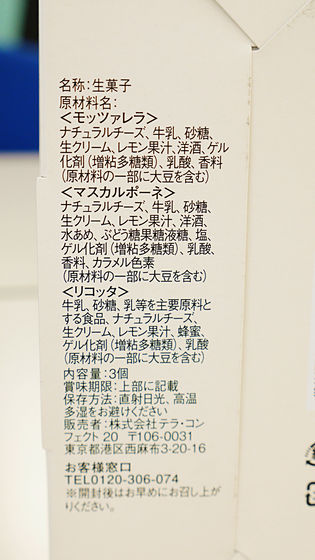 名称:生菓子
原材料名:
＜モッツァレラ＞
ナチュラルチーズ、牛乳、砂糖、
生クリーム、レモン果汁、洋酒、ゲル
化剤(増粘多糖類)、乳酸、香料
(原材料の一部に大豆を含む)
＜マスカルポーネ＞
ナチュラルチーズ、牛乳、砂糖、
生クリーム、レモン果汁、洋酒、
水あめ、ぶどう糖果糖液糖、塩、
ゲル化剤(増粘多糖類)、乳酸、
香料、カラメル色素
(原材料の一部に大豆を含む)
＜リコッタ＞
牛乳、砂糖、乳等を主要原料と
する食品、ナチュラルチーズ、
生クリーム、レモン果汁、蜂蜜、
ゲル化剤(増粘多糖類)、乳酸
(原材料の一部に大豆を含む)
内容量:3個
賞味期限:上部に記載
保存方法:直射日光、高温
多湿をお避けください
販売者:株式会社テラ・コン
フェクト 20 〒106-0031
東京都港区西麻布3-20-16
お客様窓口
TEL0120-306-074
※開封後はお早めにお召し上が
りください。